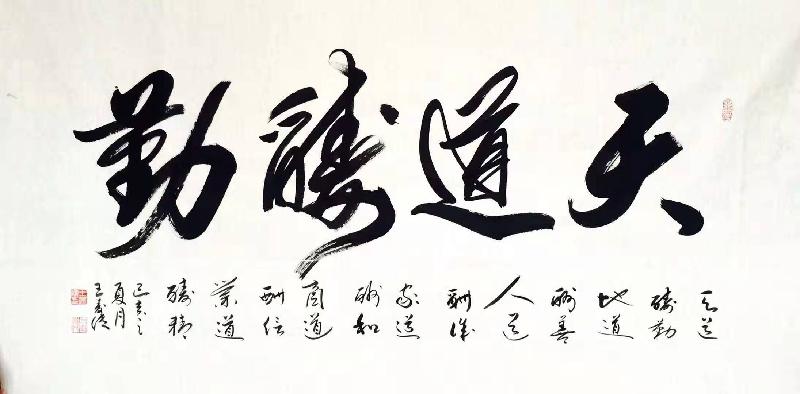 天道酬勤
天道
酬勤
地道
酬善
人道
酬誠
家道
酬和
商道
酬信
業道
酬精
己亥之
夏月
王